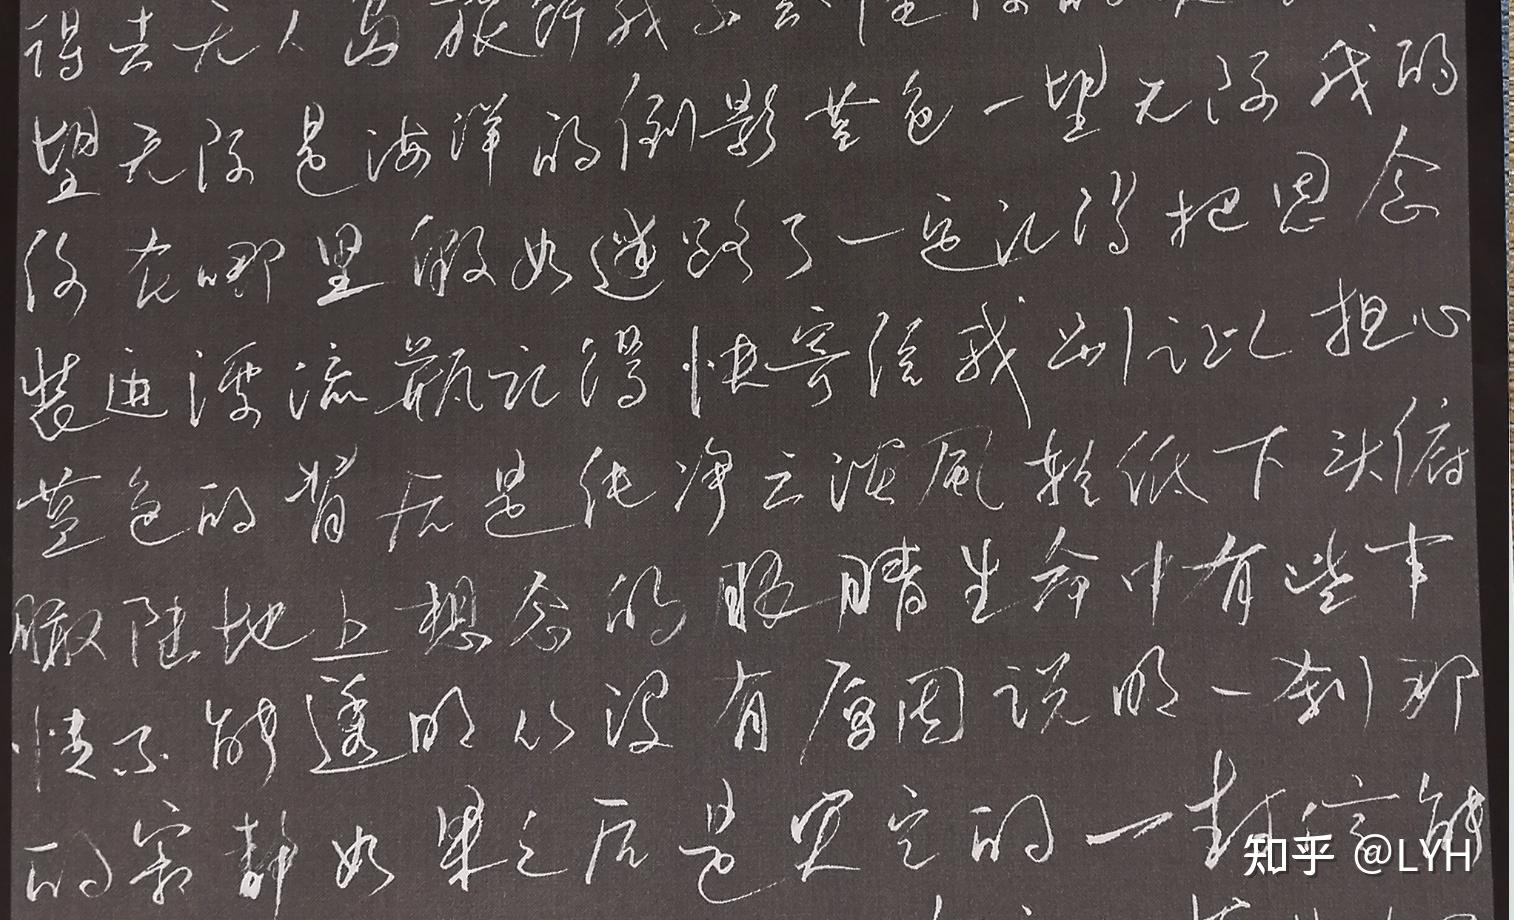 得去无人岛旅行我不会
望无际是海洋的倒影蓝色一望无际我的
你在哪里假如迷路了一定记得把思念
装进漂流瓶记得快寄给我别让我担心
蓝色的背后是纯净云淡风轻低下头俯
瞰陆地上想念的眼睛生命中有些事
情不能透明心没有原因说明一刹那
的寂静如果之后是哭泣的一封信能
知乎 @LYH